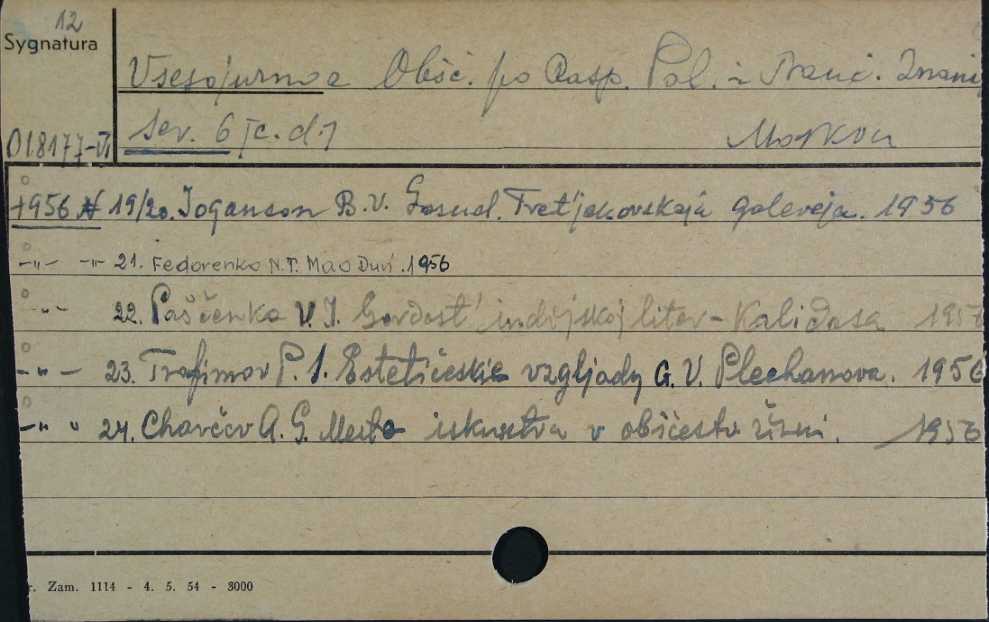 12
Sygnatura
Vsesojuznoe Obšč. po Rasp. Pol. i Nauč. Znani
018177-VI ser. 6 Moskva
1956 N 19/20. Joganson B.V. Gosud. Tret'jakovskaja galereja. 1956
-"- -"- 21. Fedorenko N.T. Mao Dun'. 1956
-"- 22. Paščenko V. I. Gordost' indijskoj liter- Kalidasa 1957
-"- 23. Trofimov P. S. Estetičeskie vzgljady G. V. Plechanova. 1956
-"- " 24. Charčev A. G. Mesto iskusstva v obščestv žizni. 1956
r. Zam. 1114 - 4. 5. 54 - 3000